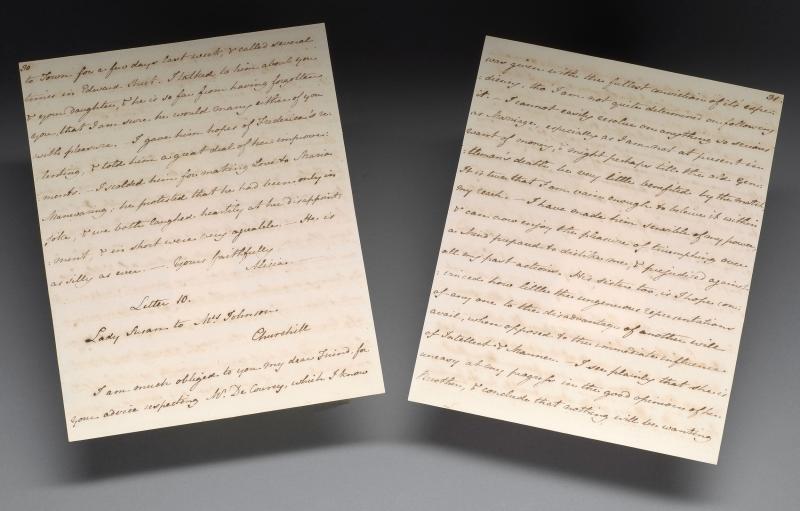 30
to Town for a few days last week, & called several
times in Edward Street. I talked to him about you
& your daughter, & he is so far from having forgotten
you, that I am sure he would marry either of you
with pleasure. I gave him hopes of Frederica's re-
lenting, & told him a great deal of her improve-
ments. — I scolded him for making Love to Maria
Manwaring; he protested that he had been only in
joke, & we both laughed heartily at her disappoint
:ment, & in short were very agreable. — He is
as silly as ever. — Yours faithfully
Alicia.
Letter 10.
Lady Susan to Mrs Johnson
Churchill
I am much obliged to you my dear Friend, for
your advice respecting Mr. De Courcy, which I know
31
was given with the fullest conviction of its expe:
:diency, tho' I am not quite determined on following
it. — I cannot easily resolve on anything so serious
as Marriage, especially as I am not at present in
want of money, & might perhaps till the old Gen:
:tleman's death, be very little benefited by the match.
It is true that I am vain enough to beleive it within
my reach. — I have made him sensible of my power
& can now enjoy the pleasure of triumphing over
a Mind prepared to dislike me, & prejudiced against
all my past actions. His sister too, is I hope con:
:vinced how little the ungenerous representations
of any one to the disadvantage of another will
avail, when opposed to the immediate influence
of Intellect & Manner. I see plainly that she is
uneasy at my progress in the good opinion of her
Brother, & conclude that nothing will be wanting